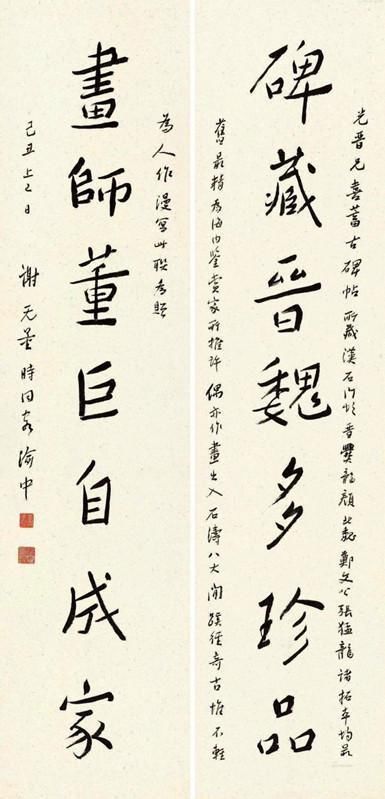 光晋兄喜蓄古碑帖所藏漢石门頌晋爨龍顏北魏鄭文公張猛龍諸拓本均最
碑藏晉魏多珍品
舊最精為海内鑒賞家所推許偶亦作畫出入石濤八大間蹊徑奇古惟不輕
為人作漫寫此聯為贈
畫師董巨自成家
己丑上巳日 謝无量時同客渝中